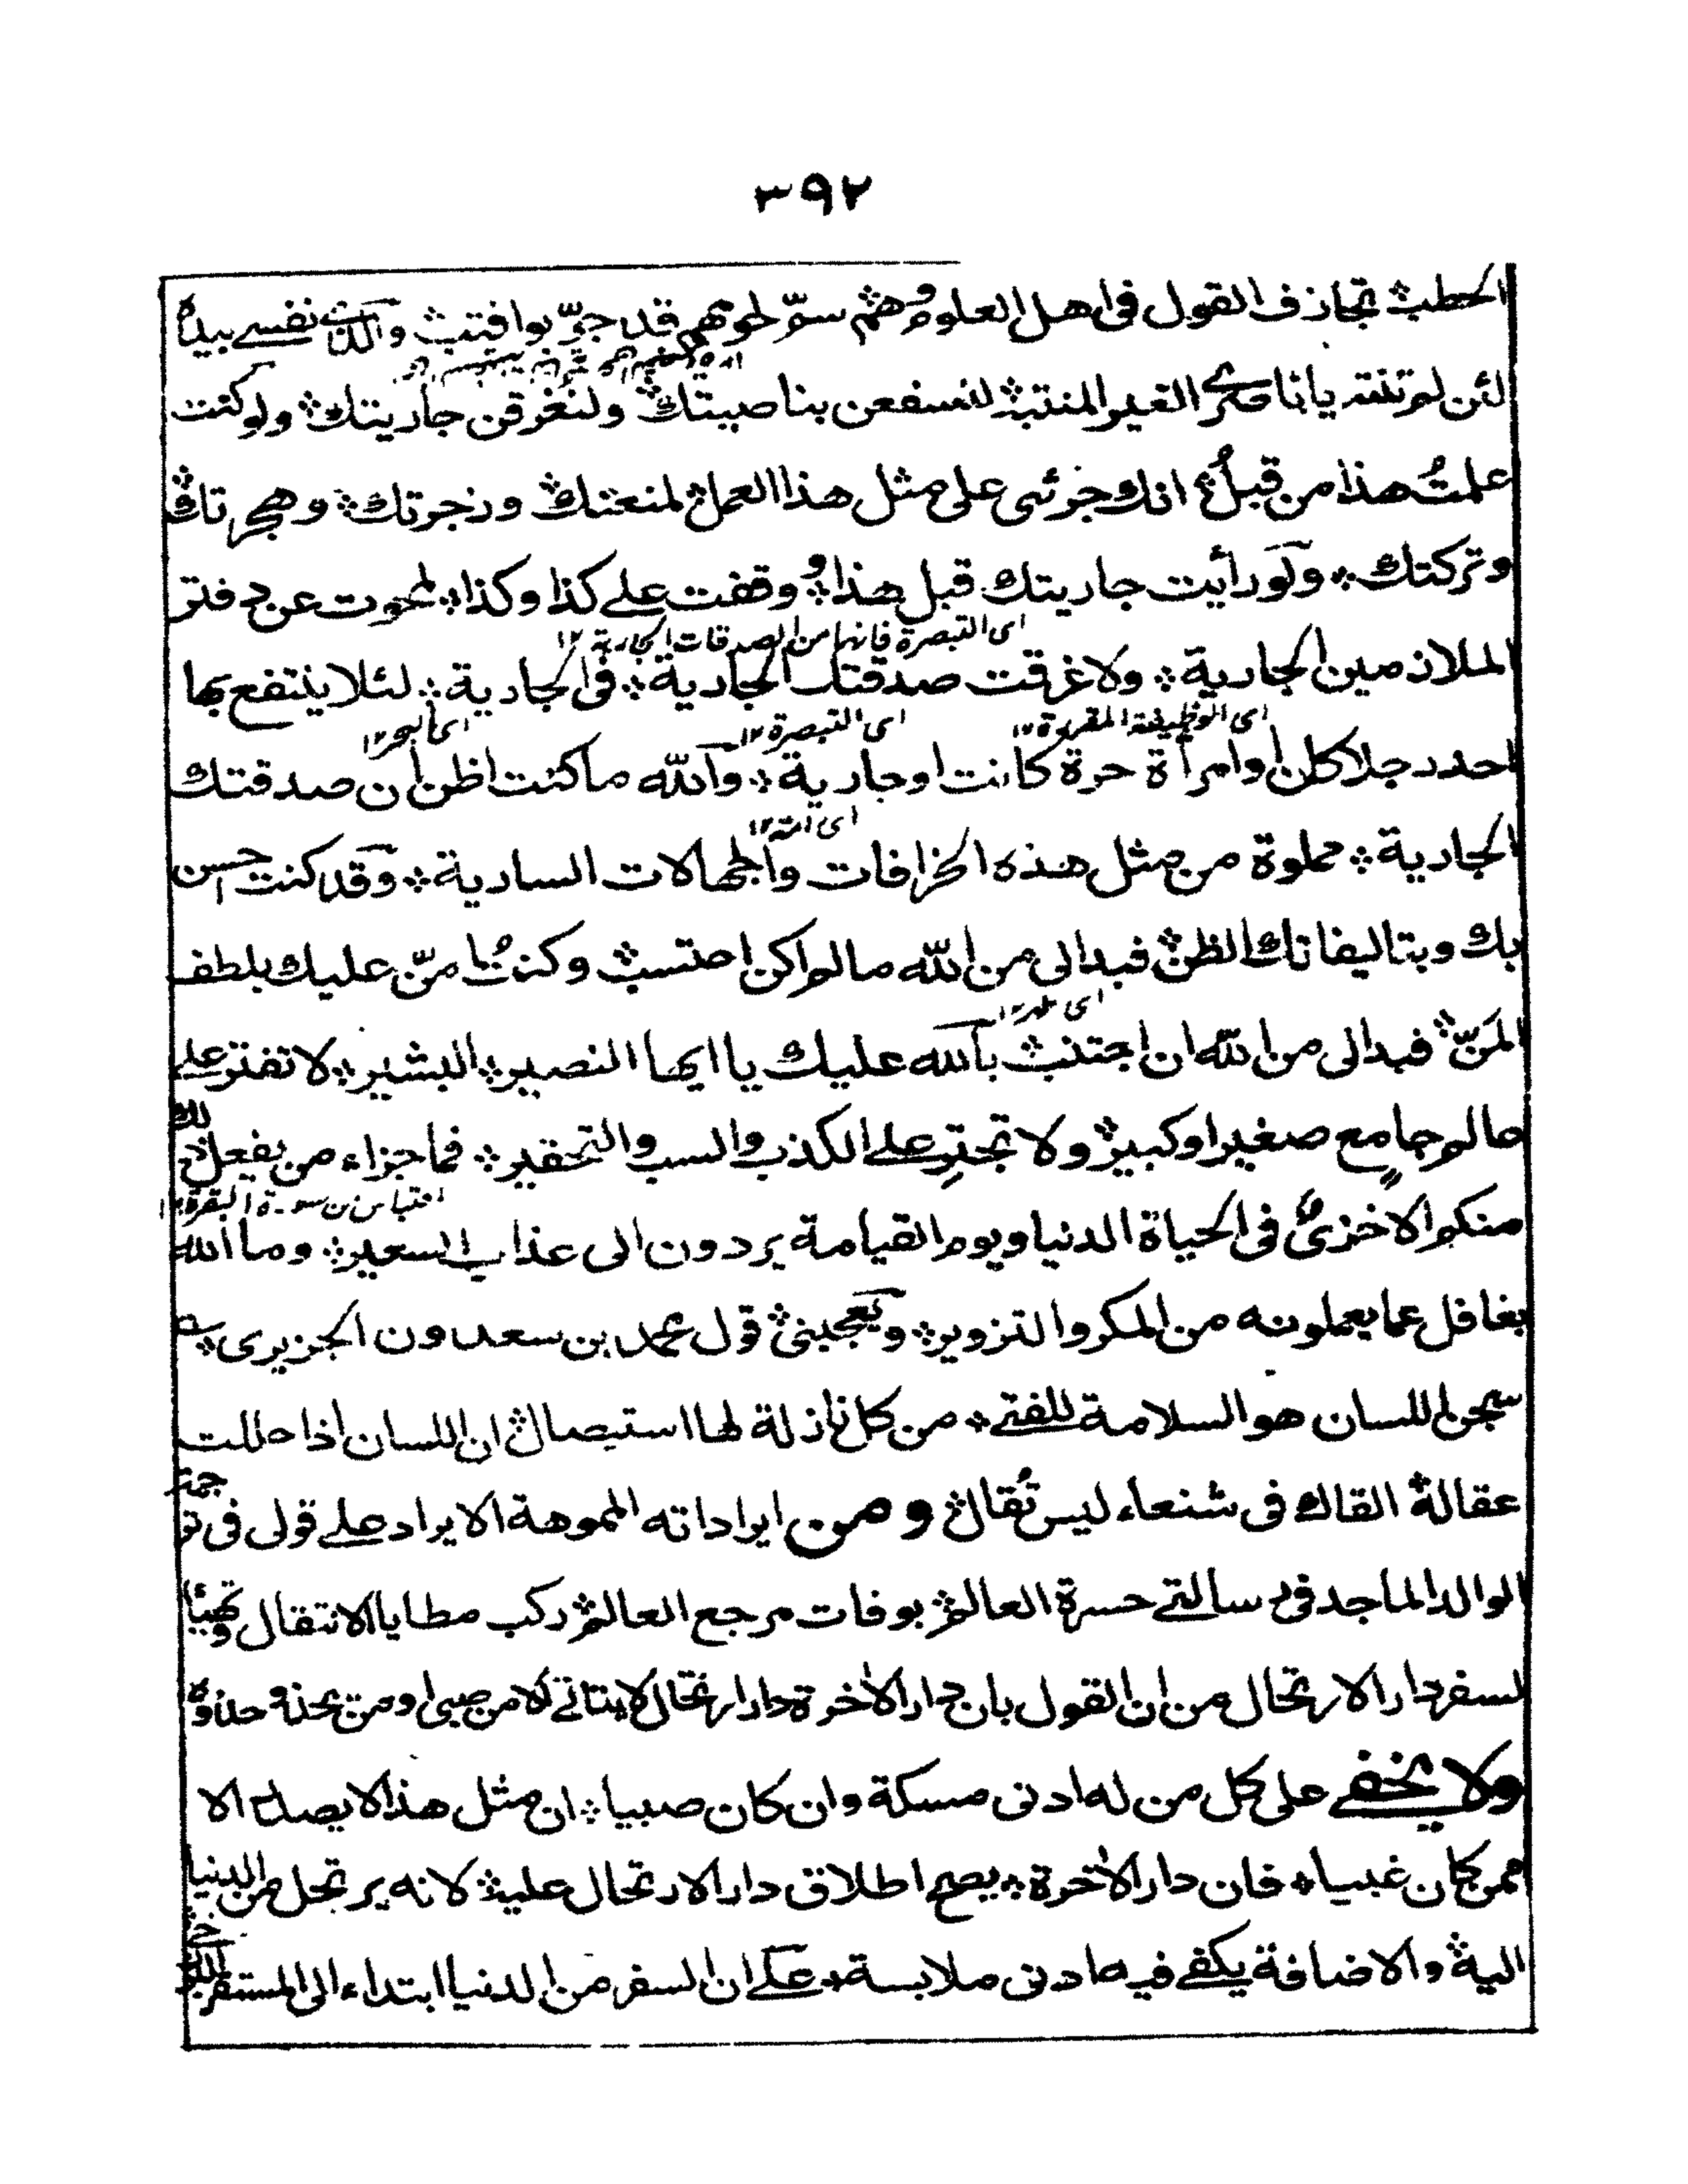 ٣٩٢
الحطب ۞ تجازف القول فی اهل العلوم وهم ۞ سمّ لحومهم قد جرّبوا فتب ۞ والذی نفسے بیدہ
لئن لم تنته یا ناصری الغیر المنتبہ ۞ لنسفعن بناصیتك ۞ ولنغرقن جاریتك ۞ ولو كنت
علمتُ هذا من قبلُ ۞ انك جرئی علی مثل هذا العمل ۞ لمنعتك ۞ وزجرتك ۞ وهجرتك ۞
وتركتك ۞ ولو رأیت جاریتك قبل هذا ۞ ووقفت علے كذا وكذا ۞ لمحوت عن دفتر
ای التبصرة فانها من الصدقات الجاریة ١٢
الملازمین الجاریة ۞ ولاغرقت صدقتك الجاریة ۞ فی الجاریة ۞ لئلا ینتفع بها
ای الوظیفة المقررة ١٢ ای التبصرة ١٢ ای البحر ١٢
احد رجلا كان او امرأة حرة كانت او جاریة ۞ والله ما كنت اظن ان صدقتك
ای امة ١٢
الجاریة ۞ مملوة من مثل هذه الخرافات والجهالات الساریة ۞ وقد كنت احسن
بك وبتالیفاتك الظن ۞ فبدا لی من الله ما لم اكن احتسب ۞ وكنتُ امنّ علیك بلطف
ای ظهر ١٢
المَنّ ۞ فبدا لی من الله ان اجتنب ۞ بالله علیك یا ایها النصیر ۞ البشیر ۞ لا تفتر علے
عالم جامع صغیر او كبیر ۞ ولا تجترِ علے الكذب والسب والتحقیر ۞ فما جزاء من یفعل ذلك
اقتباس من سورة البقرة ١٢
منكم الا خزیٌ فی الحیاة الدنیا ویوم القیامة یردون الی عذاب السعیر ۞ وما الله
بغافل عما یعملونه من المكر والتزویر ۞ ویعجبنی ۞ قول محمد بن سعدون الجزیری ۞
سجن اللسان هو السلامة للفتے ۞ من كل نازلة لها استیصال ۞ ان اللسان اذا حللت
عقالهٗ القاك فی شنعاء لیس تُقال ۞ ومن ایراداته المموهة الایراد علے قولی فی ترجمة
الوالد الماجد فی رسالتے حسرة العالم ۞ بوفات مرجع العالم ۞ ركب مطایا الانتقال وتهیأ
لسفر دار الارتحال من ان القول بان دار الاٰخرة دار ارتحال لا یتاتے الا من صبی او من یحذو حذوه
ولا یخفے علی كل من له ادنی مسكة وان كان صبیا ۞ ان مثل هذا لا یصدر الا
ممن كان غبیا ۞ فان دار الاٰخرة ۞ یصح اطلاق دار الارتحال علیه ۞ لانه یرتحل من الدنیا
الیه ۞ والاضافة یكفے فیها ادنی ملابسة ۞ علے ان السفر من الدنیا ابتداء الی المستقر